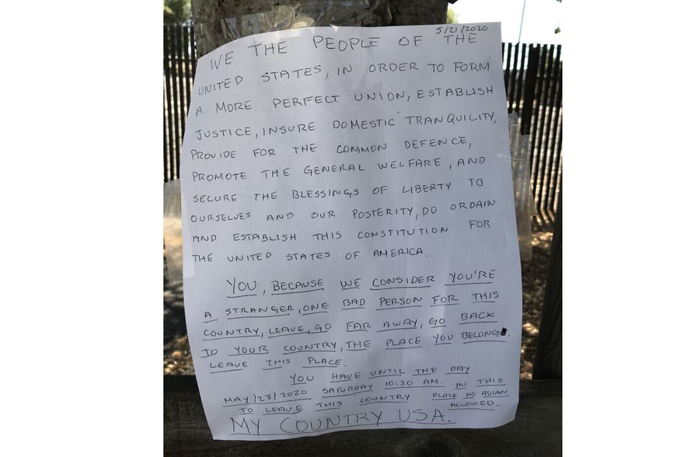 5/21/2020
WE THE PEOPLE OF THE
UNITED STATES, IN ORDER TO FORM
A MORE PERFECT UNION, ESTABLISH
JUSTICE, INSURE DOMESTIC TRANQUILITY,
PROVIDE FOR THE COMMON DEFENCE,
PROMOTE THE GENERAL WELFARE, AND
SECURE THE BLESSINGS OF LIBERTY TO
OURSELVES AND OUR POSTERITY, DO ORDAIN
AND ESTABLISH THIS CONSTITUTION FOR
THE UNITED STATES OF AMERICA.
YOU, BECAUSE WE CONSIDER YOU'RE
A STRANGER, ONE BAD PERSON FOR THIS
COUNTRY, LEAVE, GO FAR AWAY, GO BACK
TO YOUR COUNTRY, THE PLACE YOU BELONG.
LEAVE THIS PLACE.
YOU HAVE UNTIL THE DAY
MAY/23/2020 SATURDAY 10:30 AM. IN THIS
TO LEAVE THIS COUNTRY PLACE NO ASIAN
ALLOWED.
MY COUNTRY USA.